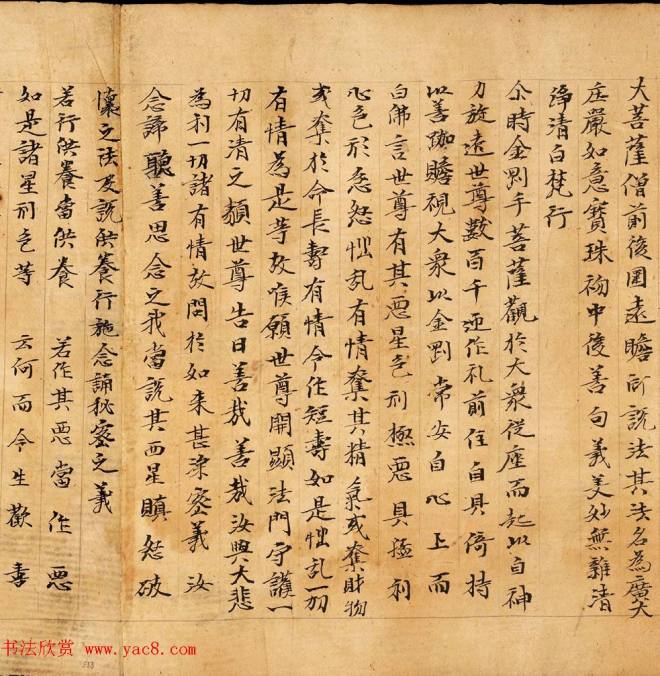 大菩薩僧前後圍遠瞻所說法其法名為廣大
庄嚴如意寶珠初中後善句義美妙無雜清
淨清白梵行
尒時金剛手菩薩觀於大衆從座而起以自神
力放遶世尊數百千迊作礼前住自具倚持
以善跏瞻視大衆以金剛常安自心上而
白佛言世尊有其惡星色形極惡具猛利
心色形忿怒惱乱有情奪其精氣或奪財物
或奪於命長壽有情令作短壽如是惱乱一切
有情為是等故唯願世尊開顯法門守護一
切有清之類世尊告曰善哉善哉汝興大悲
為利一切諸有情故問於如来甚深密義汝
念諦聽善思念之我當說其西星瞋怒破
懷之法及說供養行施念誦秘密之義
若行供養當供養 若作其惡當作惡
如是諸星形色等 云何而令生歡喜
书法欣赏 www.yac8.com